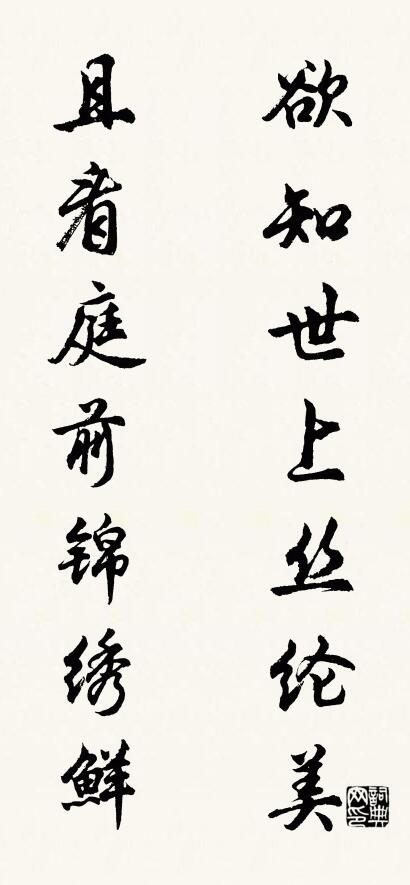 欲知世上丝纶美
且看庭前锦绣鲜
词典网印